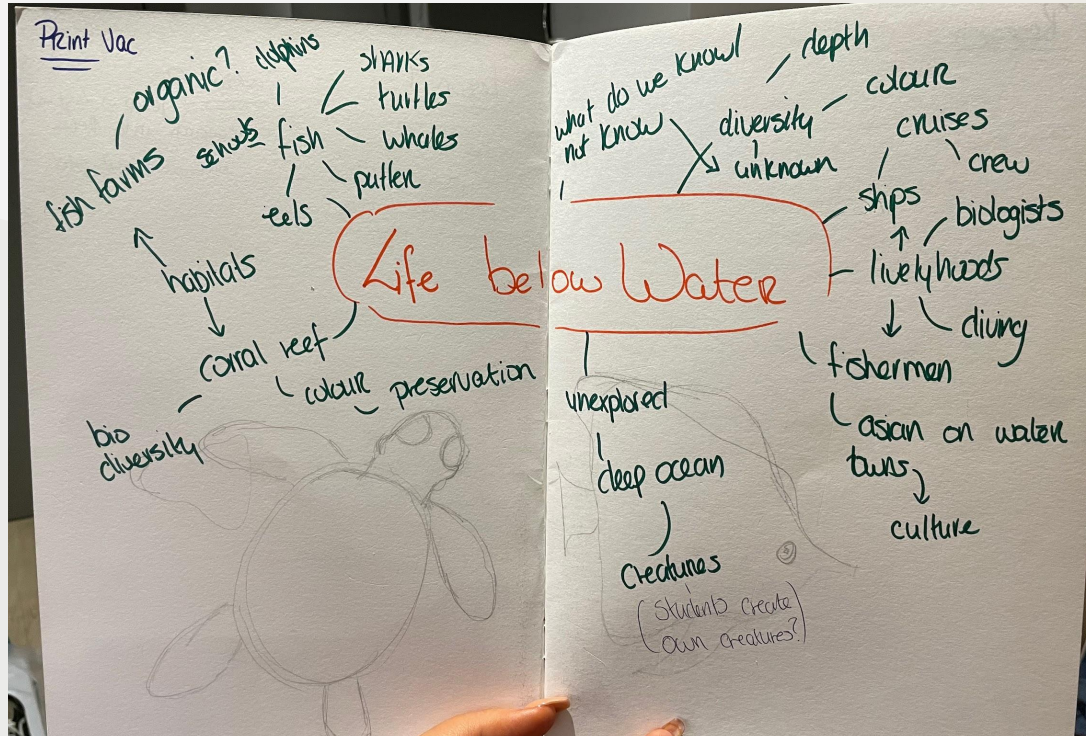 Print Vac
organic?
dolphins
sharks
turtles
whales
schools
fish
puffer
eels
fish farms
habitats
corral reef
colour
preservation
bio
diversity
Life below Water
what do we know/
not know
depth
diversity
colour
unknown
cruises
crew
ships
biologists
livelyhoods
diving
fishermen
asian on water
towns
culture
unexplored
deep ocean
creatures
(students create
own creatures?)